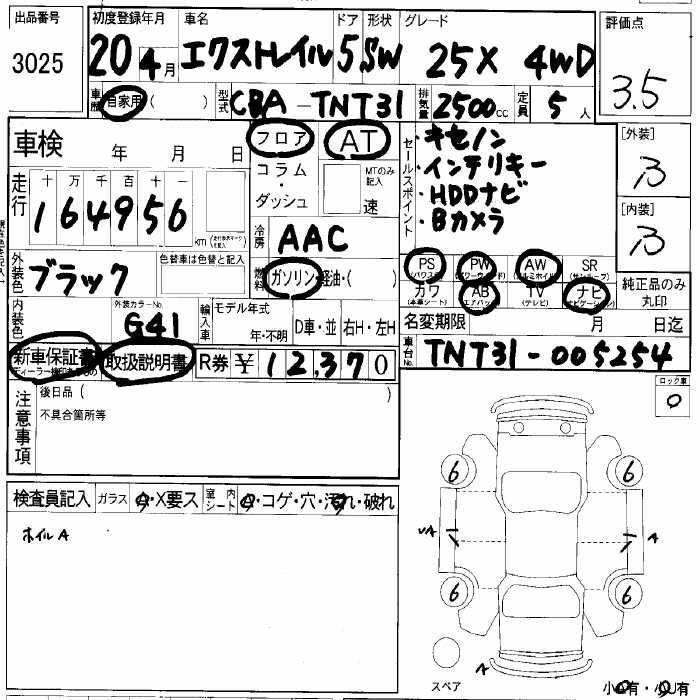 出品番号 初度登録年月 車名 ドア 形状 グレード 評価点
3025 20 4月 エクストレイル 5 SW 25X 4WD 3.5
車歴 自家用 ( ) 型式 CBA-TNT31 排気量 2500cc 定員 5人
車検 年 月 日
フロア AT
コラム・ダッシュ MTのみ記入 速
セールスポイント
・キセノン
・インテリキー
・HDDナビ
・Bカメラ
[外装]
B
[内装]
B
走行 十万千百十一
164956 km
冷房 AAC
外装色 ブラック 色替車は色替と記入
燃料 ガソリン・軽油・( )
PS (パワステ) PW (パワーウインド) AW (アルミホイル) SR (サンルーフ)
カワ (本革シート) AB (エアバッグ) TV (テレビ) ナビ (ナビゲーション)
純正品のみ丸印
内装色 外装カラーNo. G41 輸入車 モデル年式 年・不明 D車・並 右H・左H
名変期限 月 日迄
新車保証書 取扱説明書 R券 ¥12,370
車台No. TNT31-005254
注意事項 後日品 ( )
不具合箇所等
ロック車
検査員記入 ガラス A・X要ス 室内シート A・コゲ・穴・汚れ・破れ
ホイルA
6 6
A
6 6
A
スペア